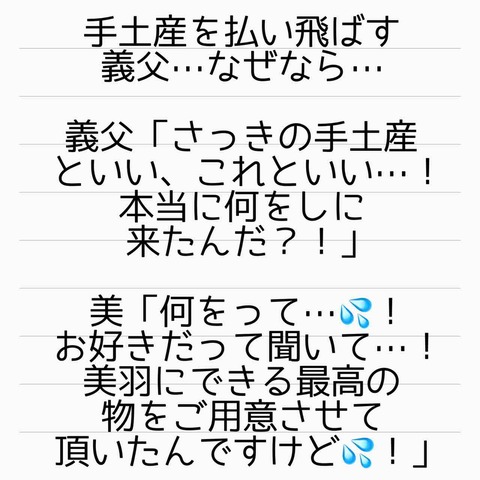 手土産を払い飛ばす
義父…なぜなら…
義父「さっきの手土産
といい、これといい…！
本当に何をしに
来たんだ？！」
美「何をって…💦！
お好きだって聞いて…！
美羽にできる最高の
物をご用意させて
頂いたんですけど💦！」